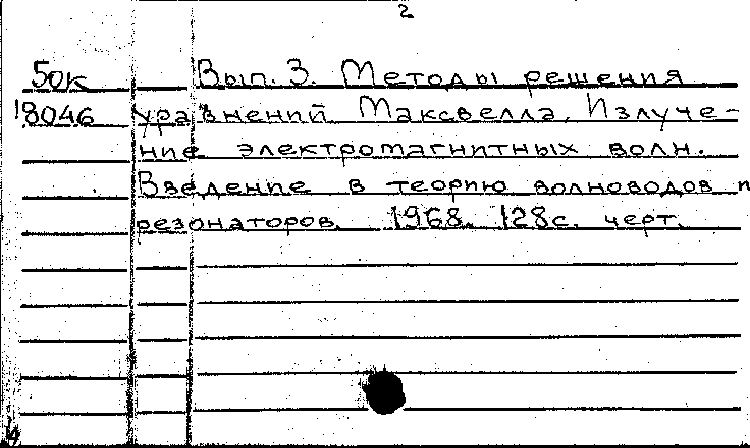 2
50к Вып. 3. Методы решения
18046 уравнений Максвелла. Излуче-
ние электромагнитных волн.
Введение в теорию волноводов и
резонаторов. 1968. 128с. черт.